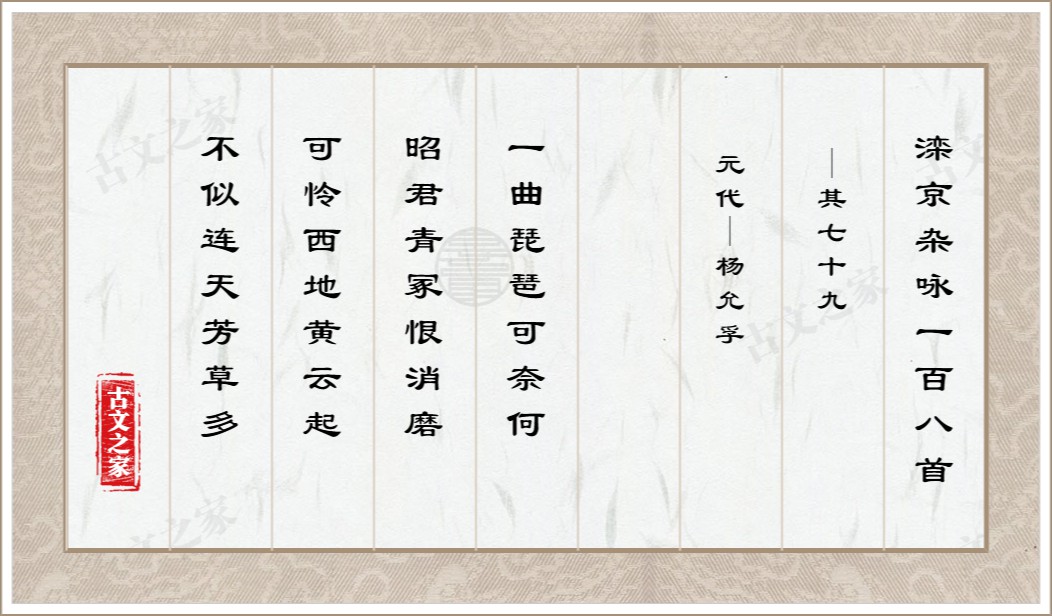 滦京杂咏一百八首
—其七十九
元代—杨允孚
一曲琵琶可奈何
昭君青冢恨消磨
可怜西地黄云起
不似连天芳草多
古文之家
古文之家
古文之家
古文之家